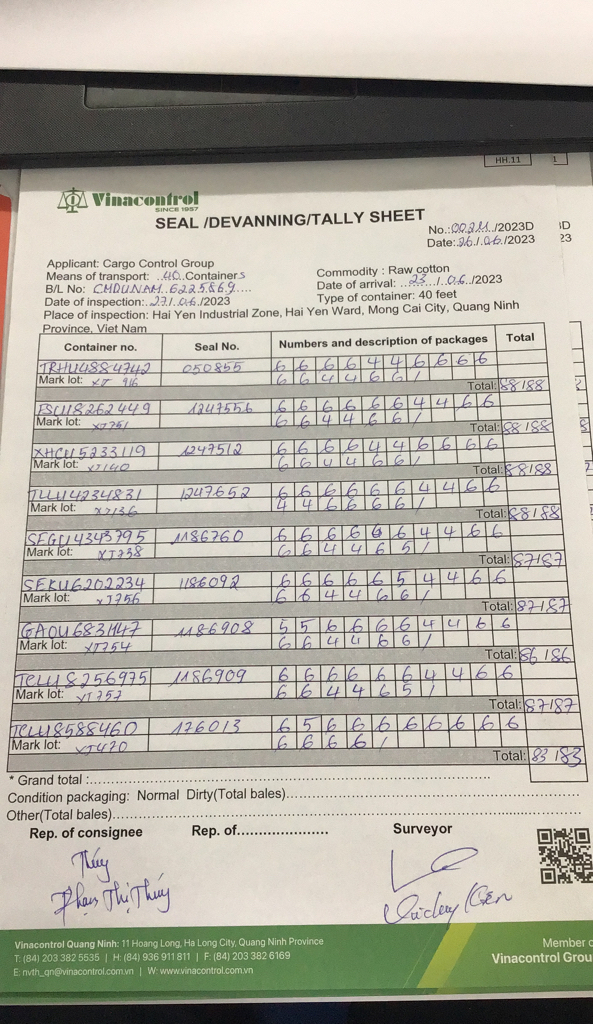 HH.11
1
Vinacontrol
SINCE 1957
SEAL /DEVANNING/TALLY SHEET
No.:00211/2023D
Date:26/.06./2023
Applicant: Cargo Control Group
Means of transport: ..40..Containers
B/L No: CMDUNAM.6225869....
Date of inspection:.27/.06./2023
Commodity : Raw cotton
Date of arrival: ..23.../.06./2023
Type of container: 40 feet
Place of inspection: Hai Yen Industrial Zone, Hai Yen Ward, Mong Cai City, Quang Ninh
Province, Viet Nam
Container no. Seal No. Numbers and description of packages Total
TRHU4884742 050855 6 6 6 6 4 4 6 6 6 6
Mark lot: XT 916 6 6 4 4 6 6 /
Total: 88 188
1247556 6 6 6 6 6 6 4 4 6 6
Mark lot: XT751 6 6 4 4 6 6 /
Total: 88 188
XHCU5233119 1247512 6 6 6 6 4 4 6 6 6 6
Mark lot: XT140 6 6 4 4 6 6 /
Total: 88 188
TLLU4234831 1247652 6 6 6 6 6 6 4 4 6 6
Mark lot: XT136 4 4 6 6 6 6 /
Total: 88 188
SEGU4343795 1186760 6 6 6 6 6 6 4 4 6 6
Mark lot: XT738 6 6 4 4 6 5 /
Total: 87 187
SEKU6202234 1186092 6 6 6 6 6 5 4 4 6 6
Mark lot: XT756 6 6 4 4 6 6 /
Total: 87 187
GAOU6831147 1186908 5 5 6 6 6 6 4 4 6 6
Mark lot: XT754 6 6 4 4 6 6 /
Total: 86 186
TCLU8256975 1186909 6 6 6 6 6 6 4 4 6 6
Mark lot: XT757 6 6 4 4 6 5 /
Total: 87 187
TCLU8588460 176013 6 5 6 6 6 6 6 6 6 6
Mark lot: XT470 6 6 6 6 /
Total: 83 183
* Grand total :
Condition packaging: Normal Dirty(Total bales)
Other(Total bales)
Rep. of consignee Rep. of Surveyor
Thúy
Phạm Thị Thúy
Vinacontrol Quang Ninh: 11 Hoang Long, Ha Long City, Quang Ninh Province
T: (84) 203 382 5535 | H: (84) 936 911 811 | F: (84) 203 382 6169
E: nvth_qn@vinacontrol.com.vn | W: www.vinacontrol.com.vn
Member
Vinacontrol Grou